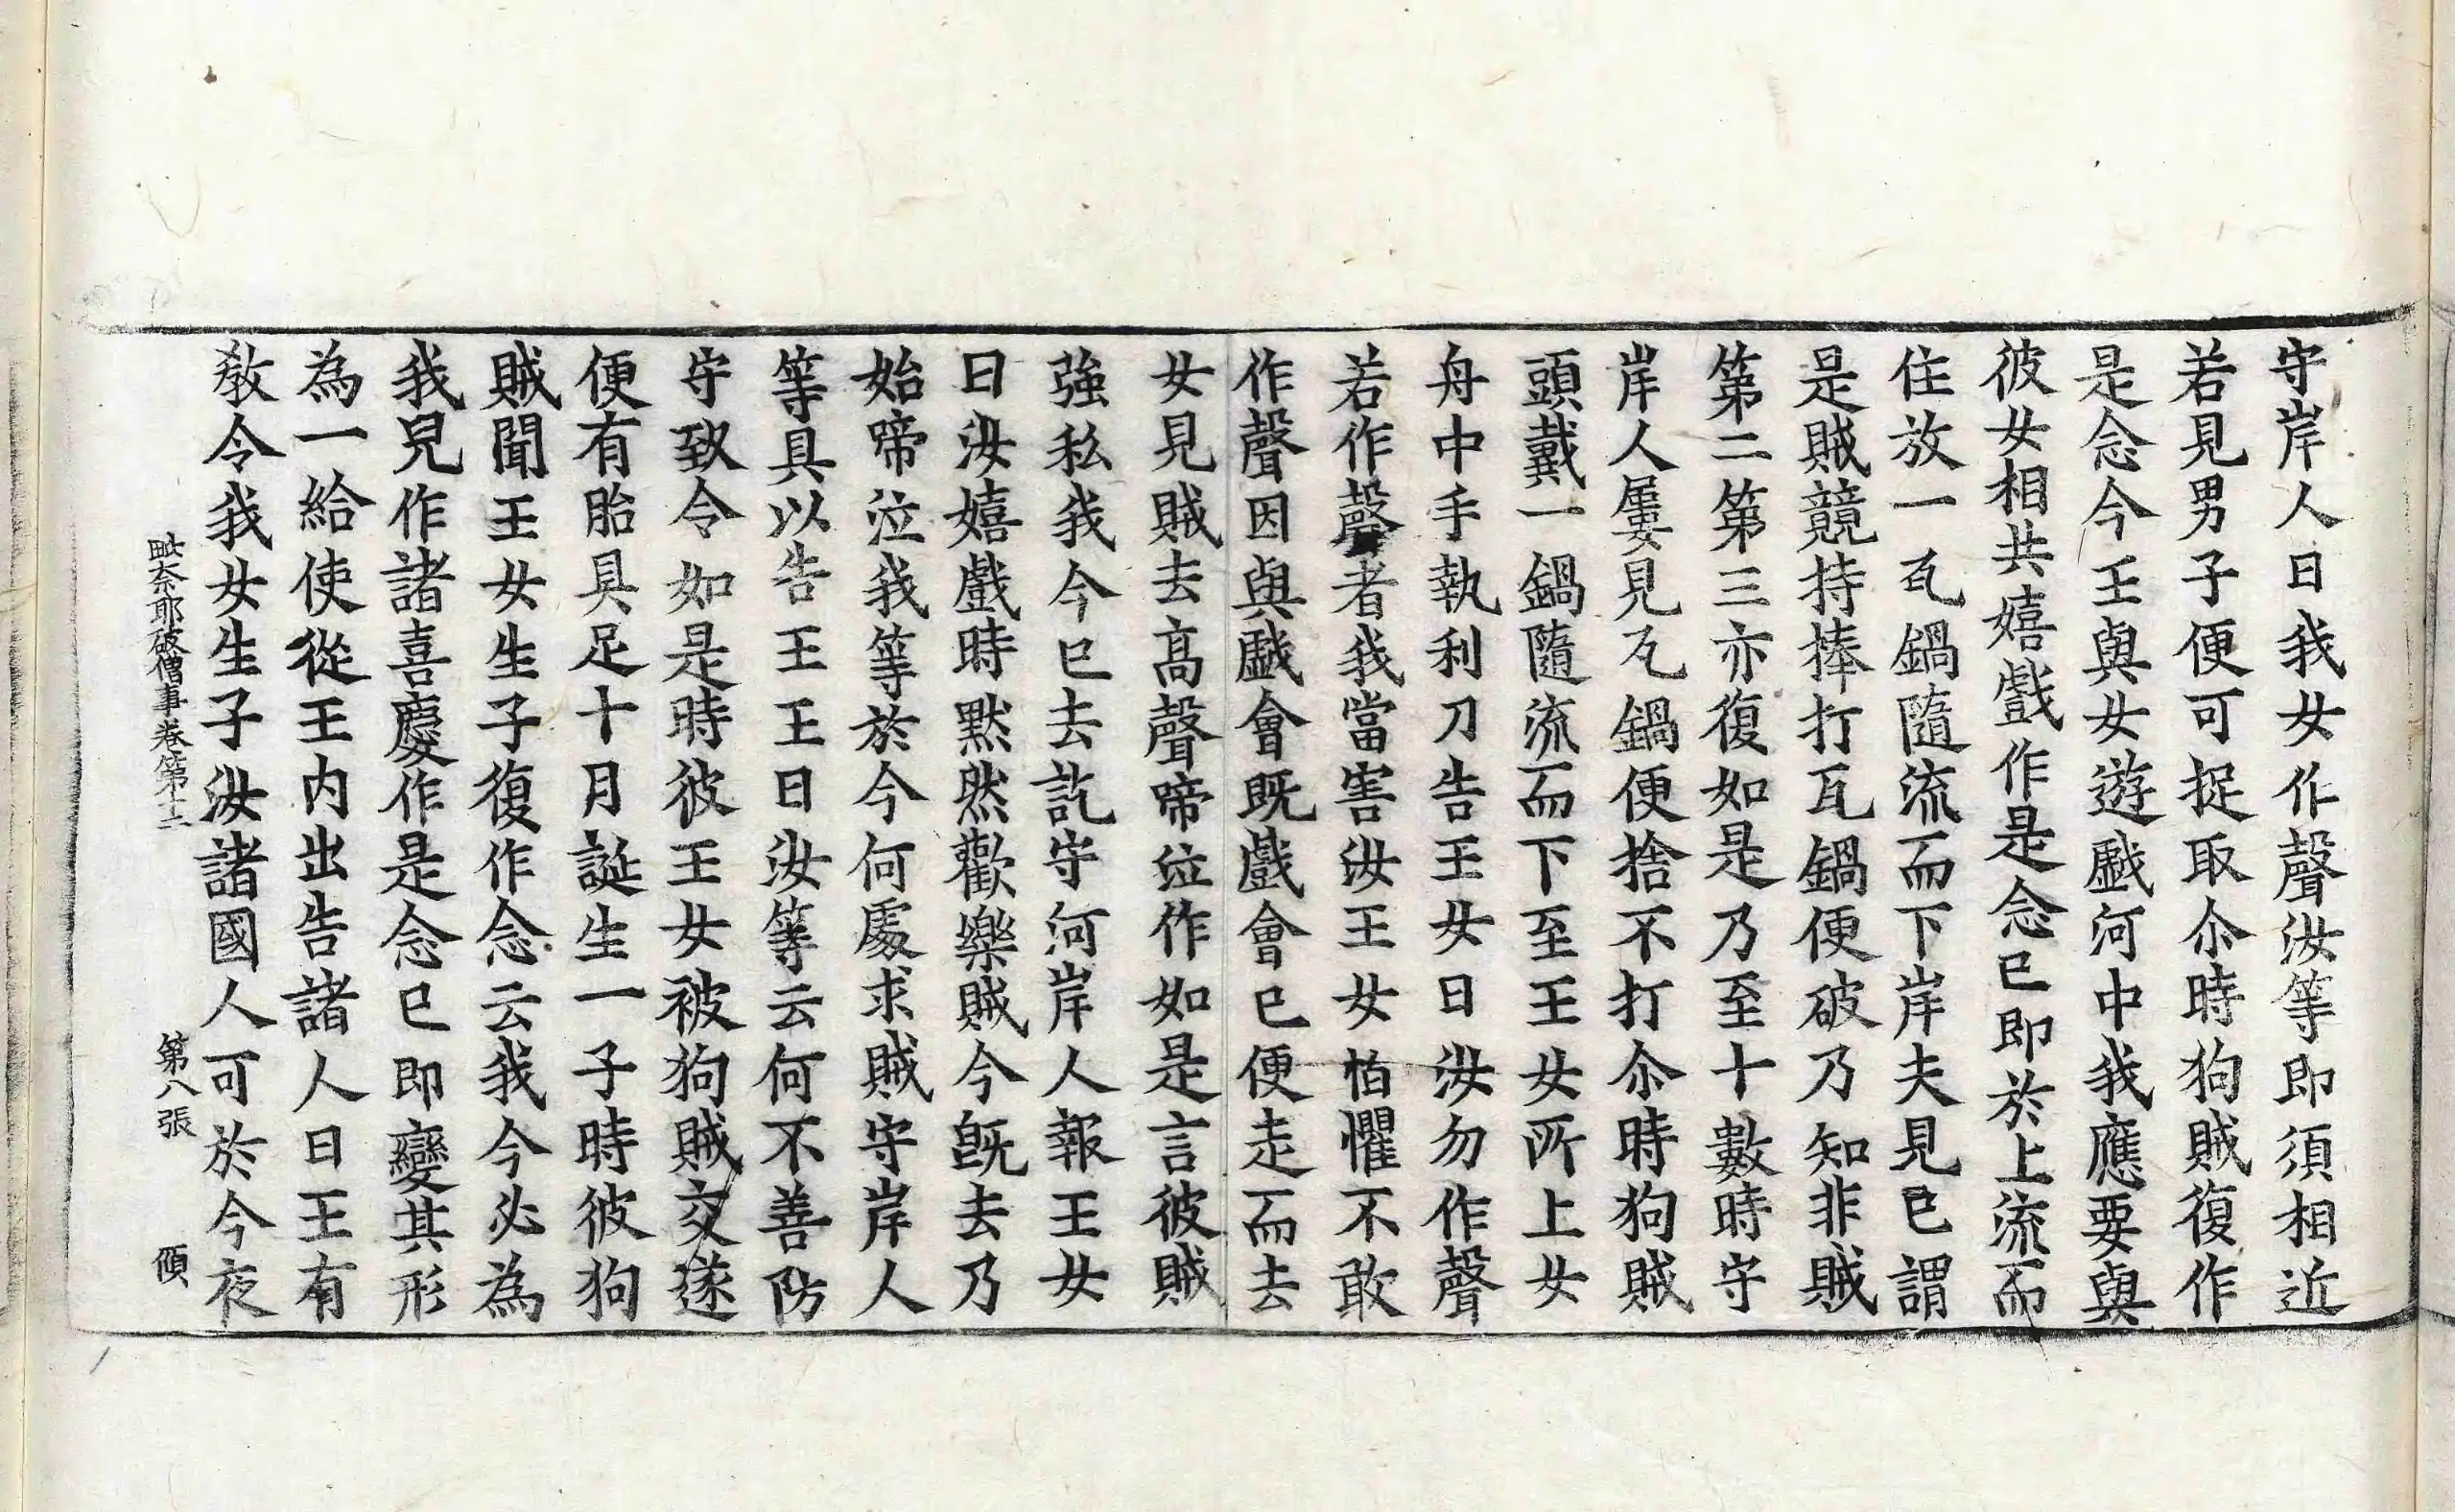 守岸人曰我女作聲汝等即須相近
若見男子便可捉取尒時狗賊復作
是念今王與女遊戲河中我應要與
彼女相共嬉戲作是念已即於上流而
住放一瓦鍋隨流而下岸夫見已謂
是賊競持捧打瓦鍋便破乃知非賊
第二第三亦復如是乃至十數時守
岸人屢見瓦鍋便捨不打尒時狗賊
頭戴一鍋隨流而下至王女所上女
舟中手執利刀告王女曰汝勿作聲
若作聲者我當害汝王女怕懼不敢
作聲因與戲會既戲會已便走而去
女見賊去高聲啼泣作如是言彼賊
強私我今已去訖守河岸人報王女
曰汝嬉戲時默然歡樂賊今旣去乃
始啼泣我等於今何處求賊守岸人
等具以告王王曰汝等云何不善防
守致令如是時彼王女被狗賊交遂
便有胎具足十月誕生一子時彼狗
賊聞王女生子復作念云我今必為
我兒作諸喜慶作是念已即變其形
為一給使從王内出告諸人曰王有
教令我女生子汝諸國人可於今夜
毗奈耶破僧事卷第十二 第八張 傾